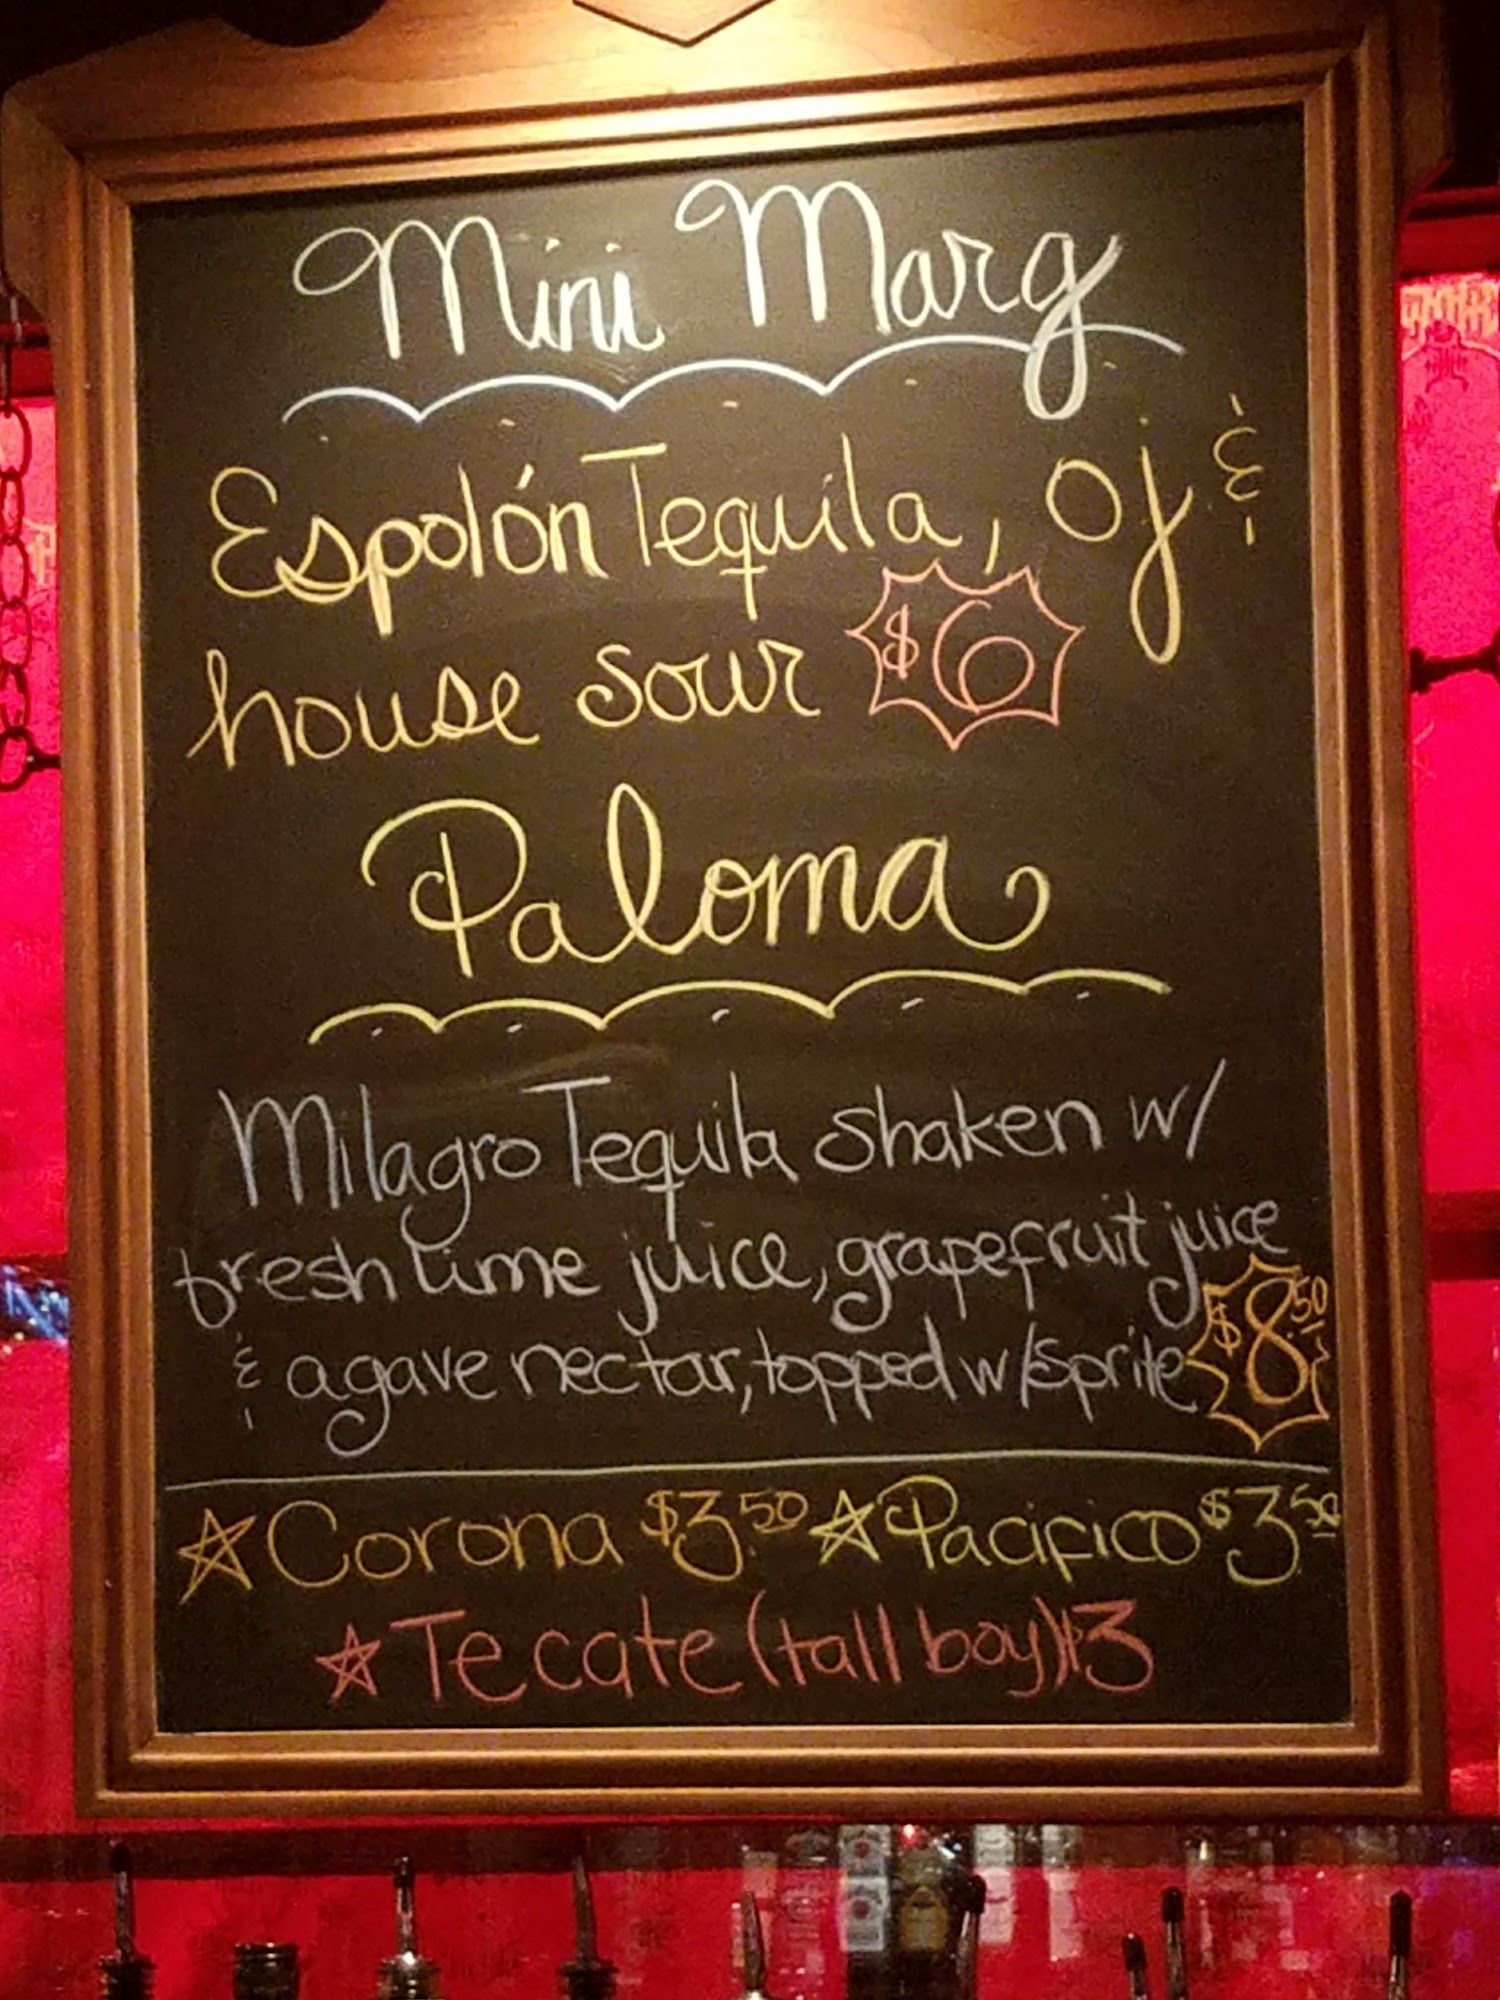 Mini Marg
Espolón Tequila, oj &
house sour $6
Paloma
Milagro Tequila shaken w/
fresh lime juice, grapefruit juice
& agave nectar, topped w/sprite $8.50
☆Corona $3.50 ☆Pacifico $3.50
☆Tecate (tall boy) $3